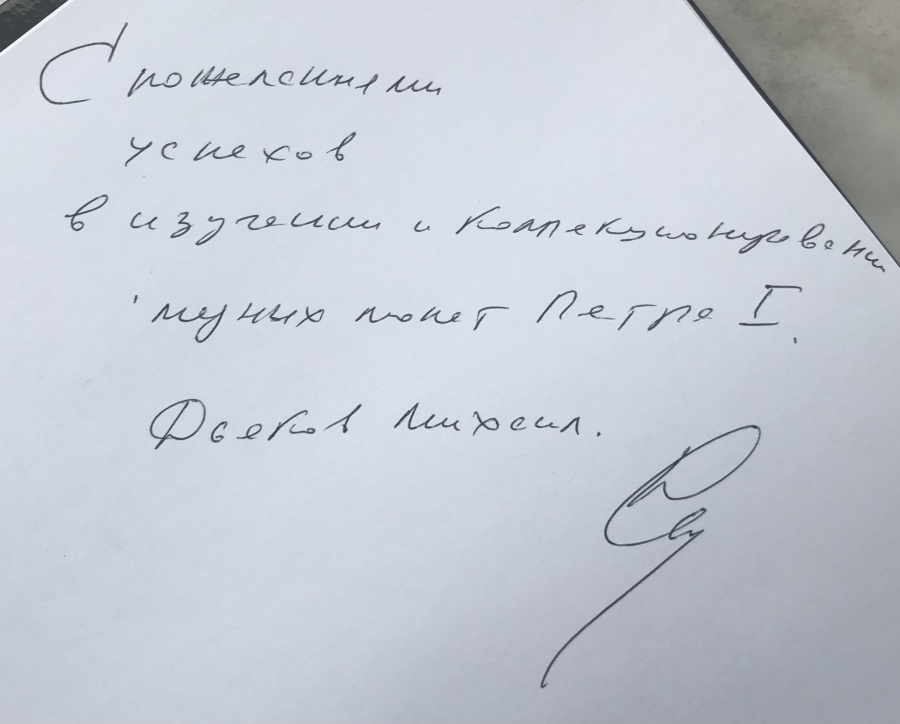 С пожеланиями
успехов
в изучении и коллекционировании
медных монет Петра I.
Дьяков Михаил.